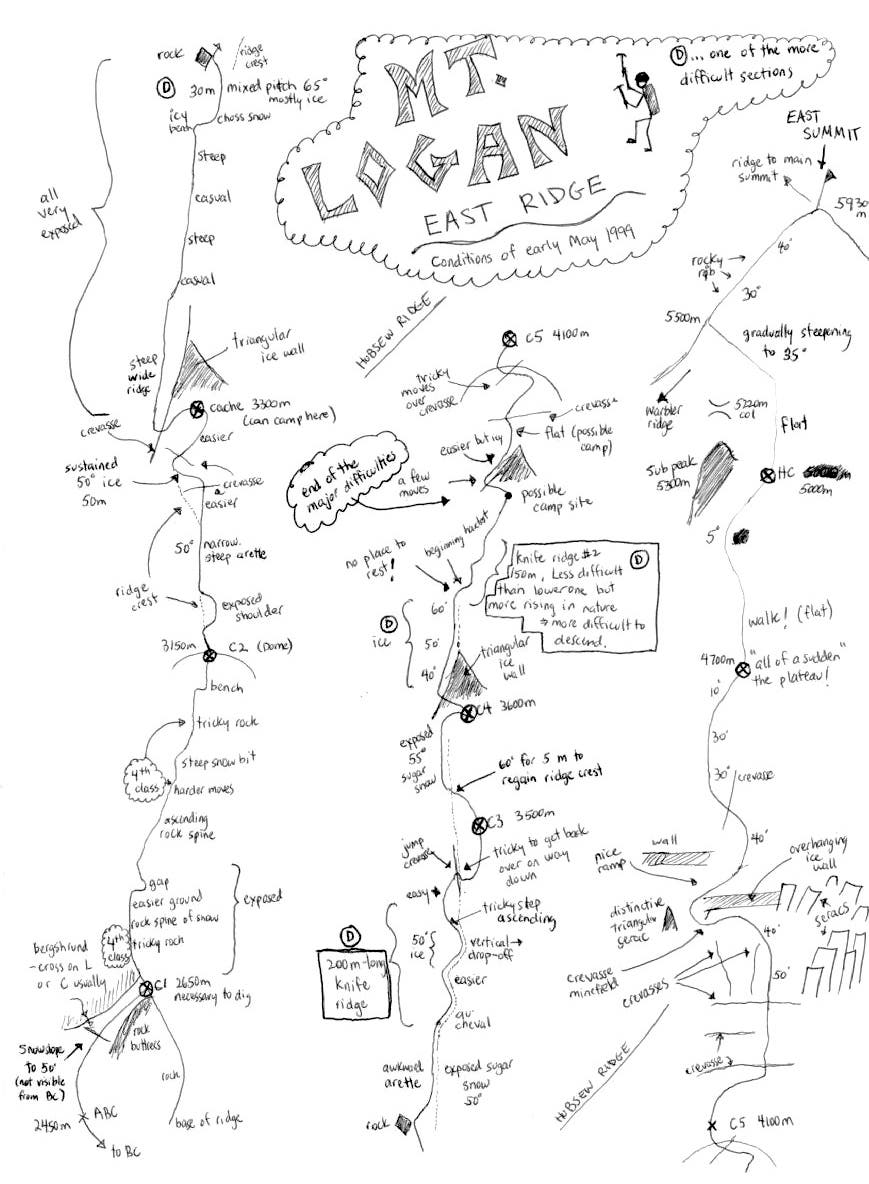 MT.
LOGAN
EAST RIDGE
Conditions of early May 1999
D ... one of the more
difficult sections
rock
ridge
crest
D 30m mixed pitch 65°
mostly ice
icy
bench
choss snow
steep
casual
steep
casual
all
very
exposed
triangular
ice wall
steep
wide
ridge
cache 3300m
(can camp here)
crevasse
easier
sustained
50° ice
50m
crevasse
easier
50°
narrow
steep arette
ridge
crest
exposed
shoulder
3150m
C2 (Dome)
bench
tricky rock
steep snow bit
4th
class
harder moves
ascending
rock spine
gap
easier ground
rock spine of snow
exposed
4th
class
tricky rock
bergshrund
-cross on L
or C usually
C1 2650m
necessary to dig
rock
buttress
snowslope
to 50°
(not visible
from BC)
rock
2450m
ABC
to BC
base of ridge
HOBSEW RIDGE
C5 4100m
tricky
moves
over
crevasse
crevasse
flat (possible
camp)
easier but icy
end of the
major difficulties
a few
moves
possible
camp site
beginning hardest
no place to
rest!
knife ridge #2
150m. Less difficult
than lower one but
more rising in nature
⇒ more difficult to
descend.
D
60°
D
ice
50°
40°
triangular
ice
wall
C4 3600m
exposed
55°
sugar
snow
60° for 5 m to
regain ridge crest
C3 3500m
jump
crevasse
tricky to get back
over on way
down
easy
tricky step
ascending
D
200m-long
knife
ridge
50°
ice
vertical
drop-off
easier
au
cheval
awkward
arette
exposed sugar
snow
50°
rock
EAST
SUMMIT
ridge to main
summit
5930
m
40°
rocky
rib
30°
5500m
gradually steepening
to 35°
warbler
ridge
5220m
col
flat
sub peak
5300m
HC
5000m
5°
walk! (flat)
4700m
"all of a sudden"
the plateau!
10°
30°
30°
crevasse
40°
wall
nice
ramp
overhanging
ice
wall
distinctive
triangular
serac
seracs
40°
crevasse
minefield
crevasses
50°
crevasse
HOBSEW RIDGE
C5 4100m